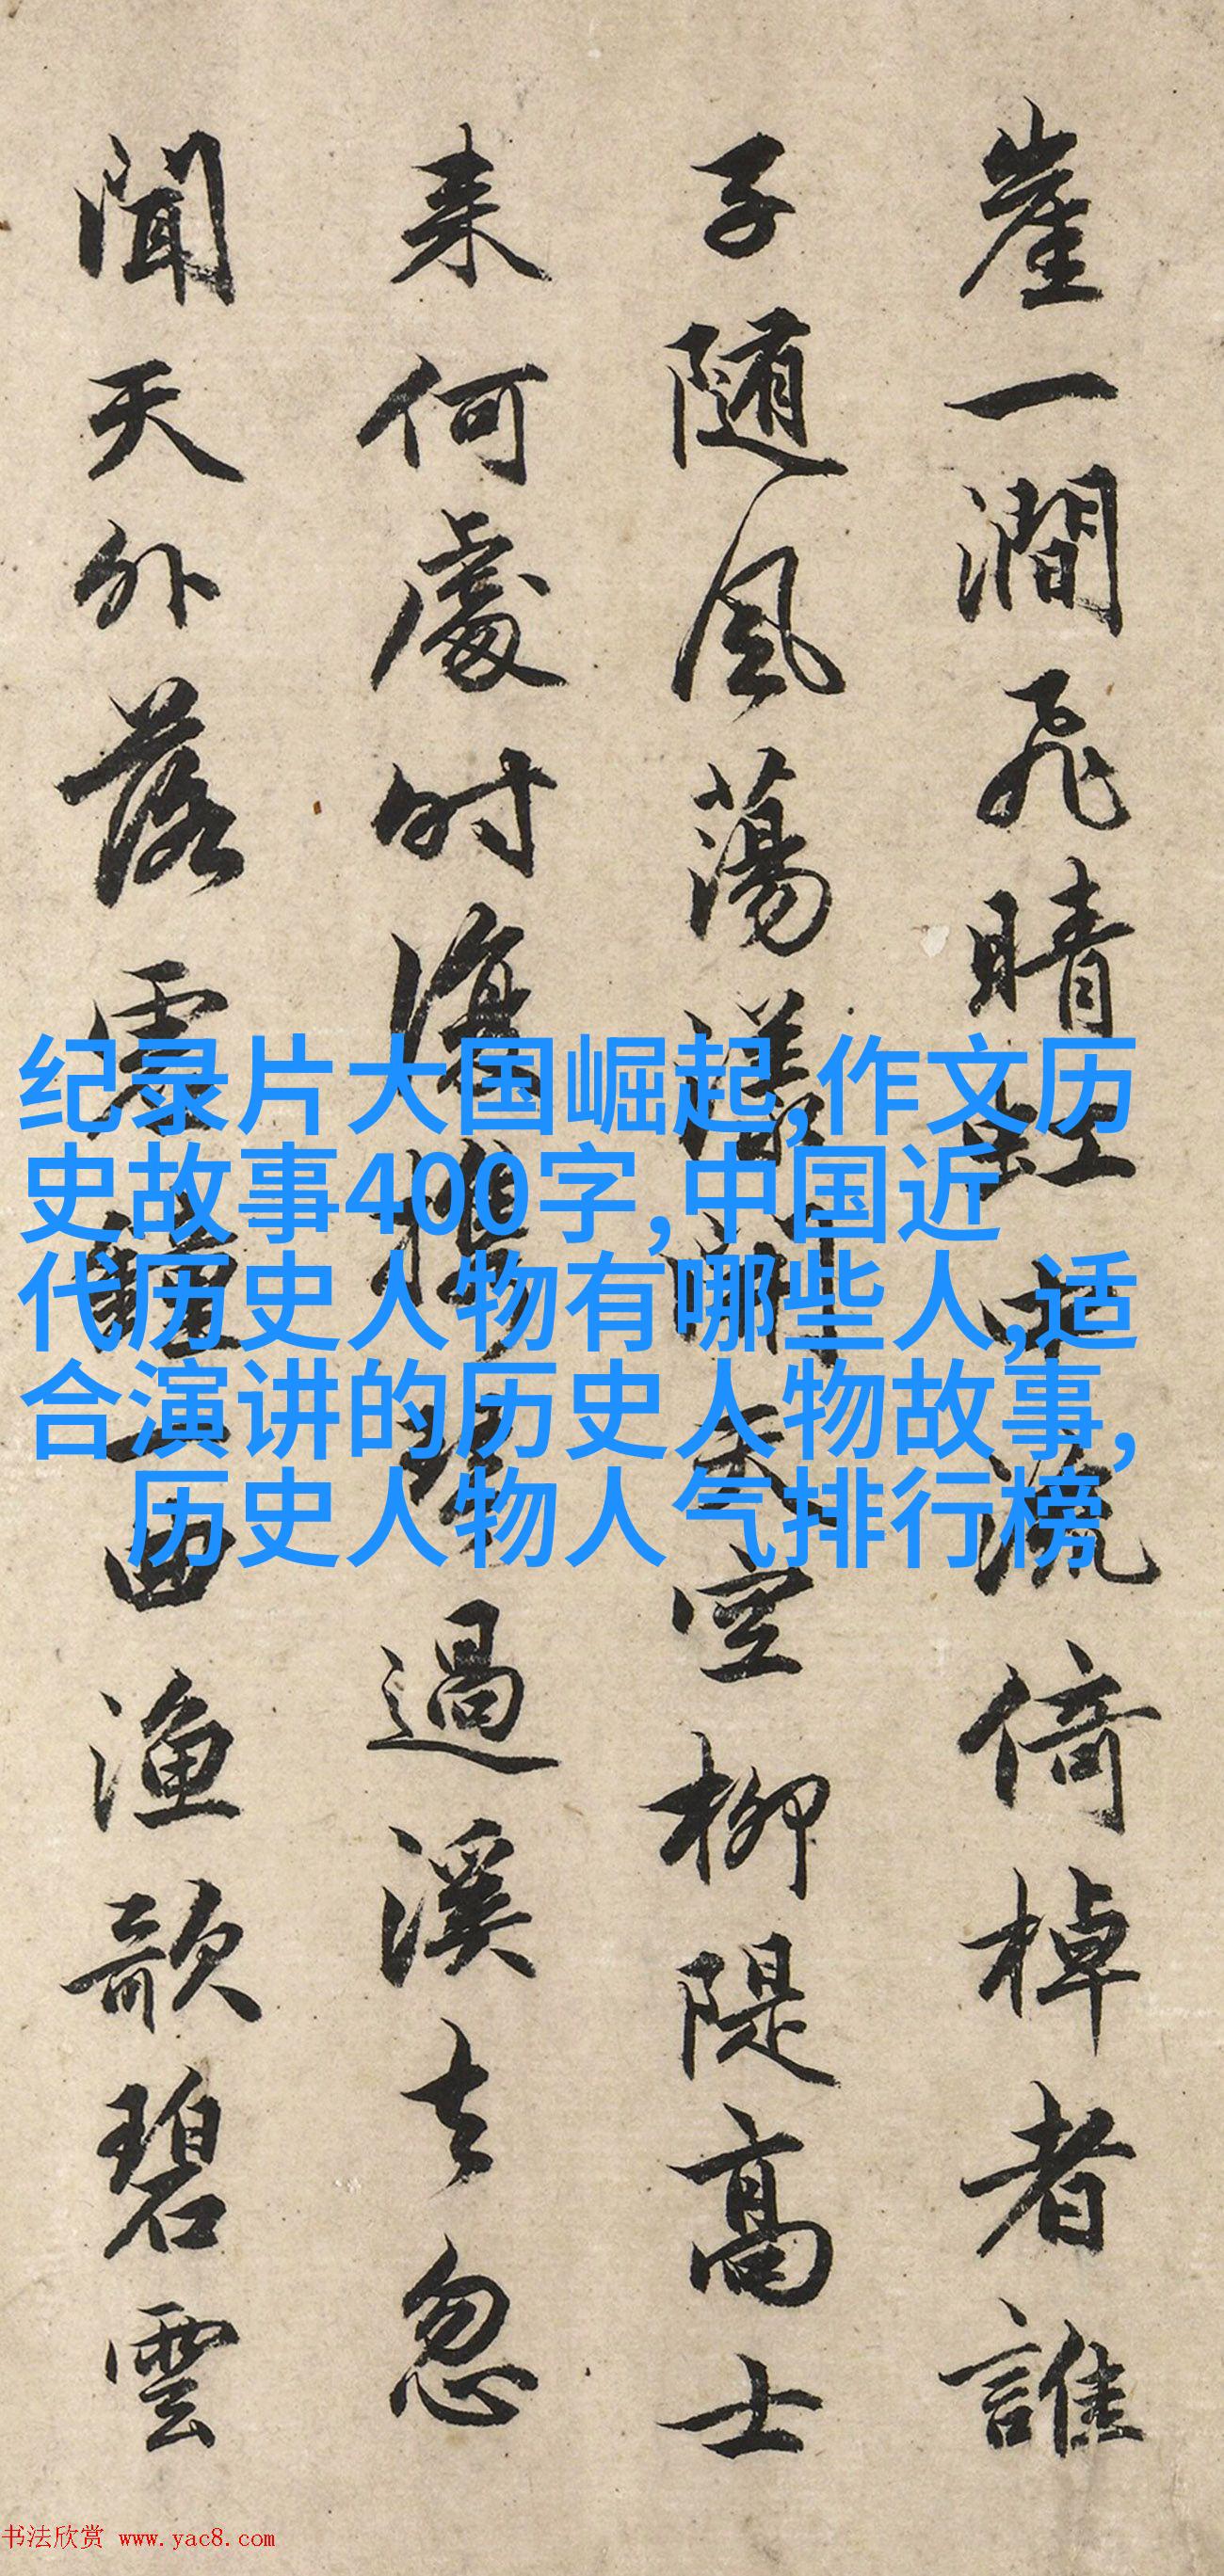 崖一澗飛晴虹中流倚棹者誰
子随風蕩漾空柳隄高士
来何處时復携琴過溪去忽
聞天外落曲漁歌碧雲
纪录片大国崛起,作文历
史故事400字,中国近
代历史人物有哪些人,适
合演讲的历史人物故事,
历史人物人气排行榜
书法欣赏 www.yac8.com